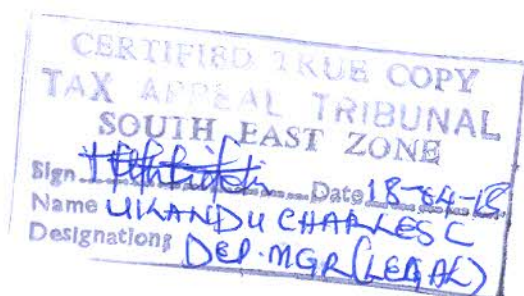 CERTIFIED TRUE COPY
TAX APPEAL TRIBUNAL
SOUTH EAST ZONE
Sign Date 18-04-18
Name UKANDU CHARLES C
Designation: DEP. MGR (LEGAL)